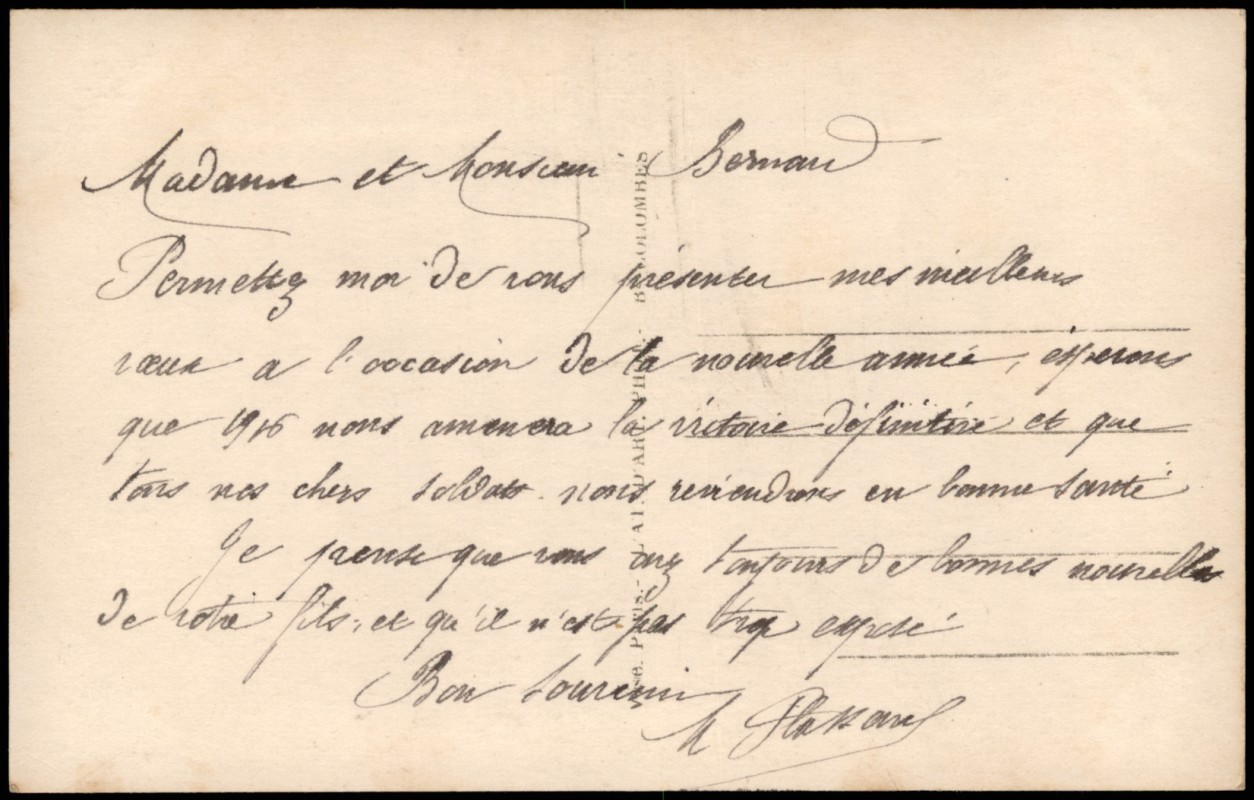 Madame et Monsieur Bernard
Permettez moi de vous présenter mes meilleurs
vœux a l'occasion de la nouvelle année, esperons
que 1916 nous amenera la victoire définitive et que
tous nos chers soldats nous reviendrons en bonne santé
Je pense que vous avez toujours de bonnes nouvelles
de votre fils, et qu'il n'est pas trop exposé
Bon Souvenir
M